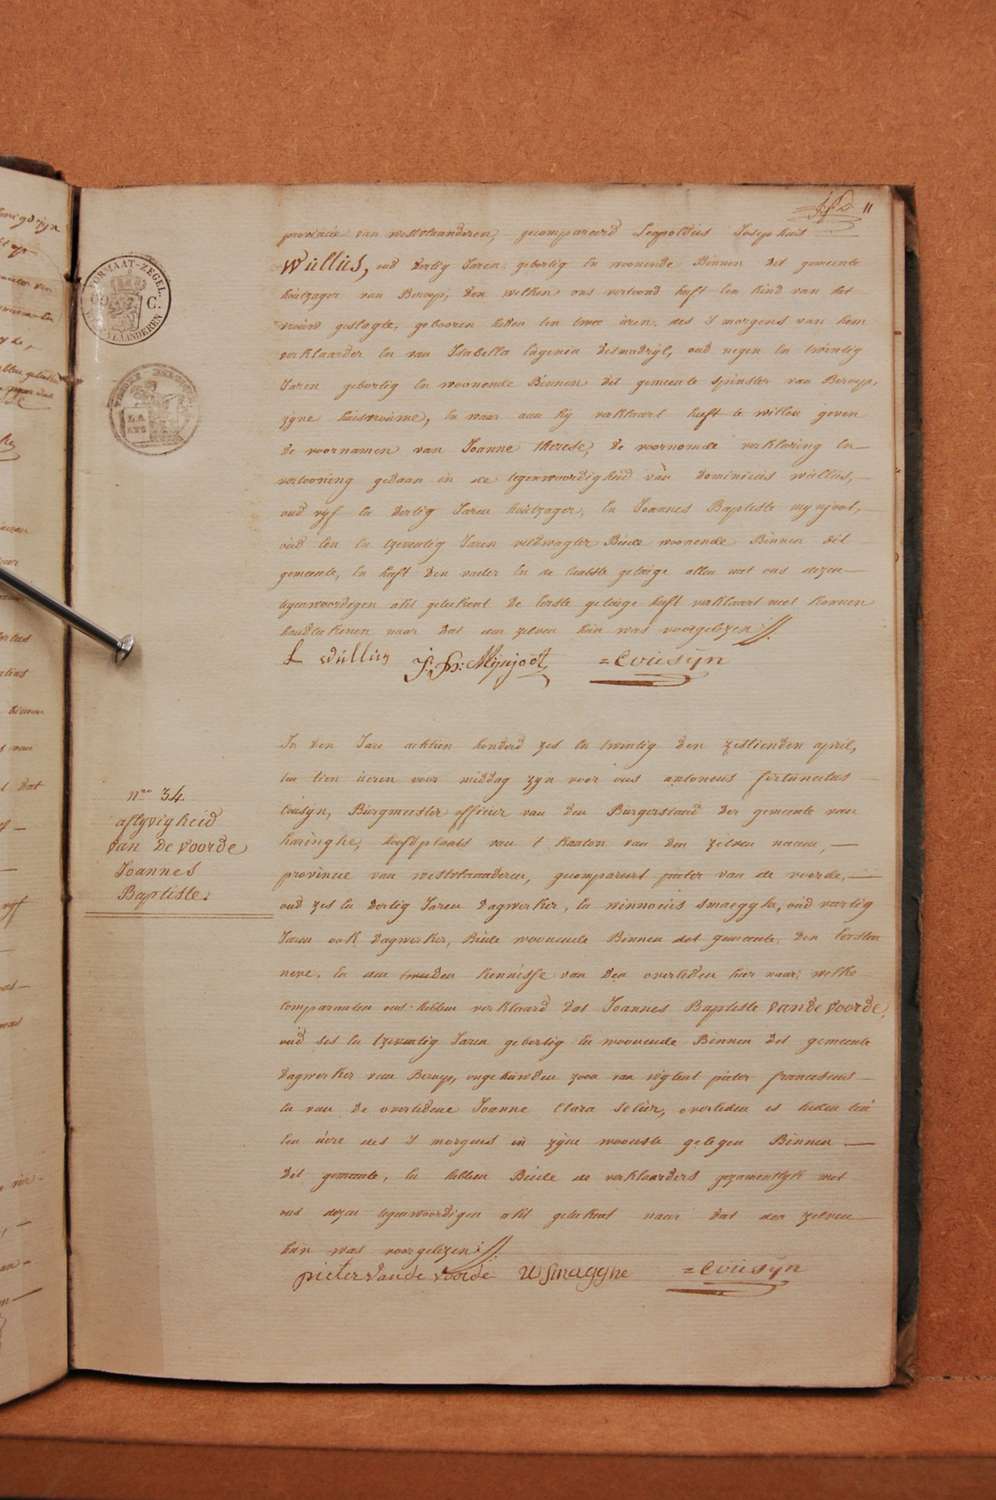 11
provincie van westvlaanderen, gecompareerd Leopoldus Josephus
Wullus, oud dertig Jaren geboortig en woonende Binnen dit gemeente
houtzager van Beroep, den welken ons vertoond heeft een kind van het
vrouwd geslagte, gebooren heden ten twee uren des 's morgens van hem
verklaarder en van Isabella Eugenia Desmadryl, oud negen en twintig
Jaren geboortig en woonende Binnen dit gemeente spinster van Beroep,
zyne huisvrouwe, en waer aan hy verklaart heeft te willen geven
de voornamen van Joanne Therese, De voornoemde verklaring en
vertooning gedaan in de tegenwoordigheid van Dominicus wullus,
oud vyf en dertig Jaren houtzager, en Joannes Baptiste mynjoot,
oud een en tzeventig Jaren veldwagter Beide woonende Binnen dit
gemeente, en heeft den vader en de laatste getuige alleen met ons dezen
tegenwoordigen akt geteekent De eerste getuige heeft verklaart niet konnen
handteekenen naer dat aen zelven hun was voorgelezen
L Wullus J: B: Mynjoot =Cousyn
In den Jare achtien honderd zes en twintig den zestienden april,
ten tien ueren voor middag zyn voor ons antonius fortunatus
Cousyn, Burgmeester officier van den Burgerstand der gemeente van
haringhe, hoofdplaats van 't kanton van den zelven naem,
provincie van westvlaanderen, gecompareert pieter van de voorde,
oud zes en dertig Jaren Dagwerker, en winnocus smaegghe, oud veertig
Jaren ook dagwerker, Beide woonende Binnen det gemeente, den eersten
neve, en den tweeden kennisse van den overleden hier naer; welke
comparanten ons hebben verklaard dat Joannes Baptiste vande voorde,
oud ses en tzeventig Jaren geboortig en woonende Binnen det gemeente
Dagwerker van Beroep, ongehuwden zoon van wylent pieter franciscus
en van de overledene Joanne Clara, overleden is heden ten
een uere des 's morgens in zyne wooneste gelegen Binnen
det gemeente, en hebben Beide de verklaarders gezamentlyk met
ons dezen tegenwoordigen akt geteekent naer dat den zelven
hun was voorgelezen
pieter vande voorde W Smagghe =Cousyn
nro 34.
aflyvigheid
van de voorde
Joannes
Baptiste.
FORMAAT-ZEGEL
C.
VLAANDEREN